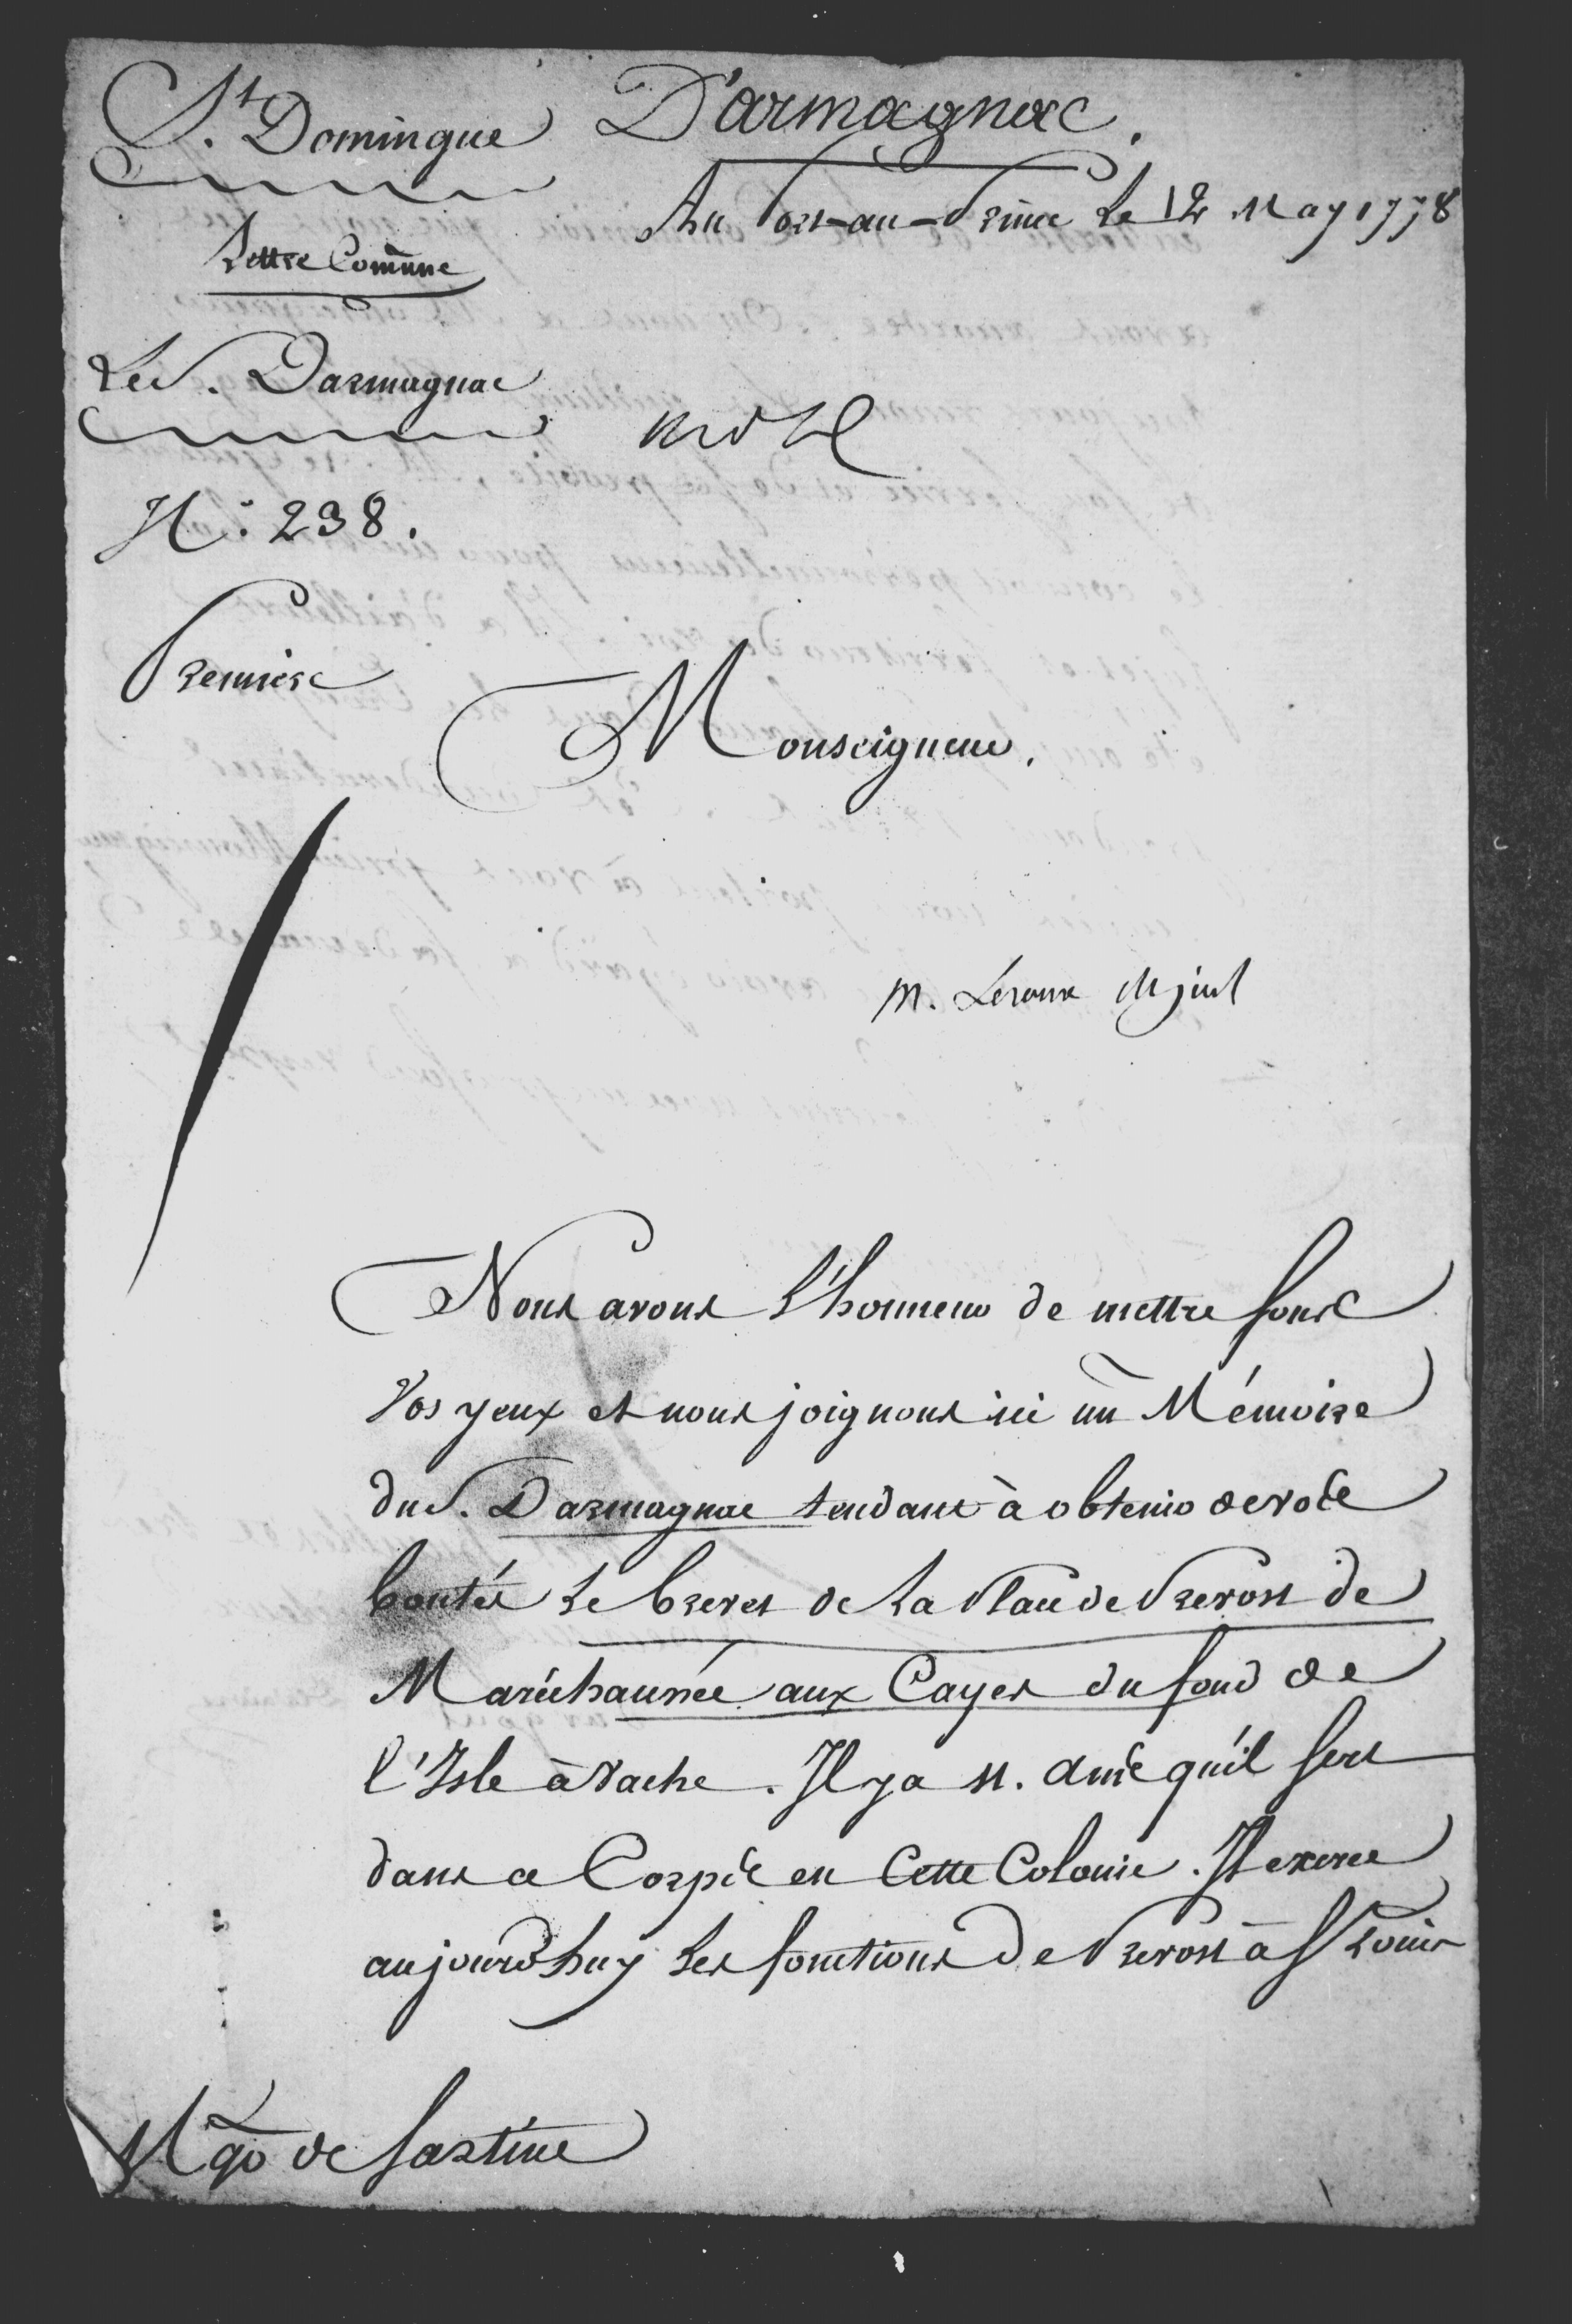 St. Domingue
D'armagnac.
Au Port-au-Prince Le 12 May 1778
Lettre Comune
Le S. Darmagnac
N.° 238.
Premiere
Monseigneur,
M. Leroux
Nous avons l'honneur de mettre sous
Vos yeux et nous joignons ici un Mémoire
du S. Darmagnac tendant à obtenir de vos
bontés Le brevet de La Place de Prevost de
Maréchaussée aux Cayes du fond de
l'Isle à Vache. Il y a 11. ans qu'il sert
dans ce Corps en Cette Colonie. Il exerce
aujourd'huy Les fonctions de Prevost à St Louis
Mgr de Sartine